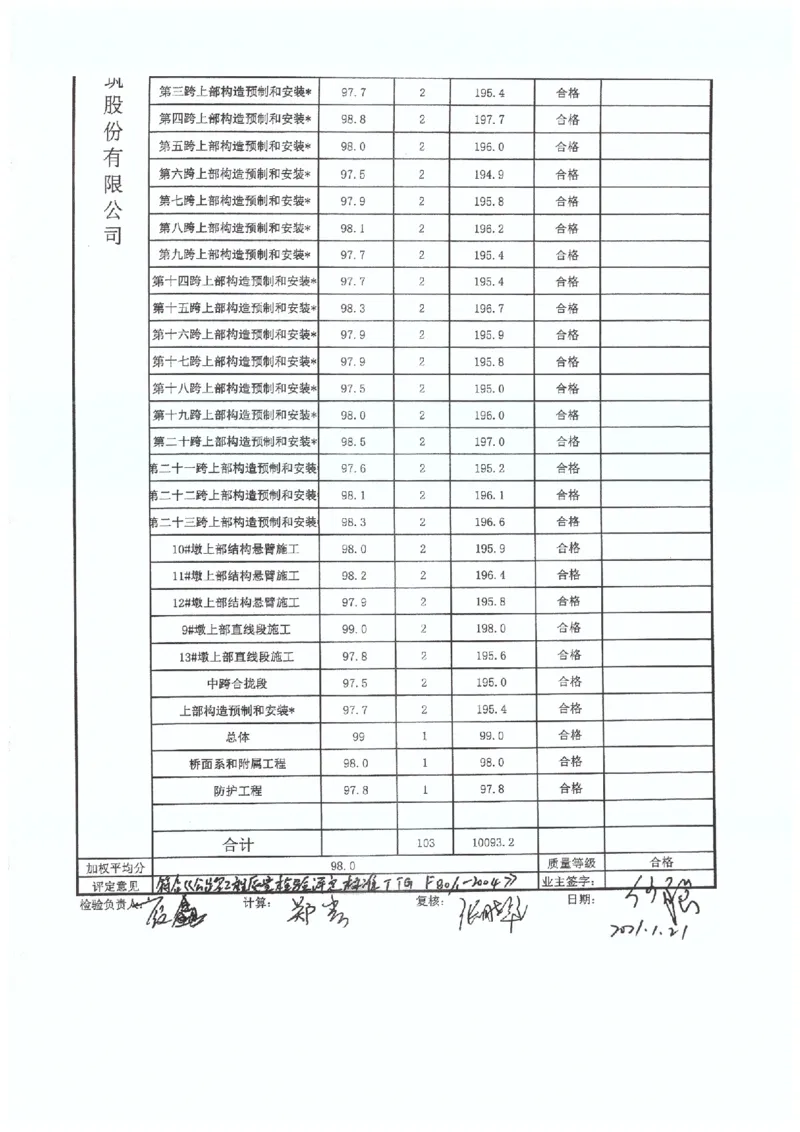 筑股份有限公司
第三跨上部构造预制和安装* 97.7 2 195.4 合格
第四跨上部构造预制和安装* 98.8 2 197.7 合格
第五跨上部构造预制和安装* 98.0 2 196.0 合格
第六跨上部构造预制和安装* 97.5 2 194.9 合格
第七跨上部构造预制和安装* 97.9 2 195.8 合格
第八跨上部构造预制和安装* 98.1 2 196.2 合格
第九跨上部构造预制和安装* 97.7 2 195.4 合格
第十四跨上部构造预制和安装* 97.7 2 195.4 合格
第十五跨上部构造预制和安装* 98.3 2 196.7 合格
第十六跨上部构造预制和安装* 97.9 2 195.9 合格
第十七跨上部构造预制和安装* 97.9 2 195.8 合格
第十八跨上部构造预制和安装* 97.5 2 195.0 合格
第十九跨上部构造预制和安装* 98.0 2 196.0 合格
第二十跨上部构造预制和安装* 98.5 2 197.0 合格
第二十一跨上部构造预制和安装 97.6 2 195.2 合格
第二十二跨上部构造预制和安装 98.1 2 196.1 合格
第二十三跨上部构造预制和安装 98.3 2 196.6 合格
10#墩上部结构悬臂施工 98.0 2 195.9 合格
11#墩上部结构悬臂施工 98.2 2 196.4 合格
12#墩上部结构悬臂施工 97.9 2 195.8 合格
9#墩上部直线段施工 99.0 2 198.0 合格
13#墩上部直线段施工 97.8 2 195.6 合格
中跨合拢段 97.5 2 195.0 合格
上部构造预制和安装* 97.7 2 195.4 合格
总体 99 1 99.0 合格
桥面系和附属工程 98.0 1 98.0 合格
防护工程 97.8 1 97.8 合格
合计 103 10093.2
加权平均分 98.0 质量等级 合格
评定意见 符合《公路工程质量检验评定标准JTG F80/1-2004》 业主签字:
检验负责人: 计算: 复核: 日期:
2021.1.21